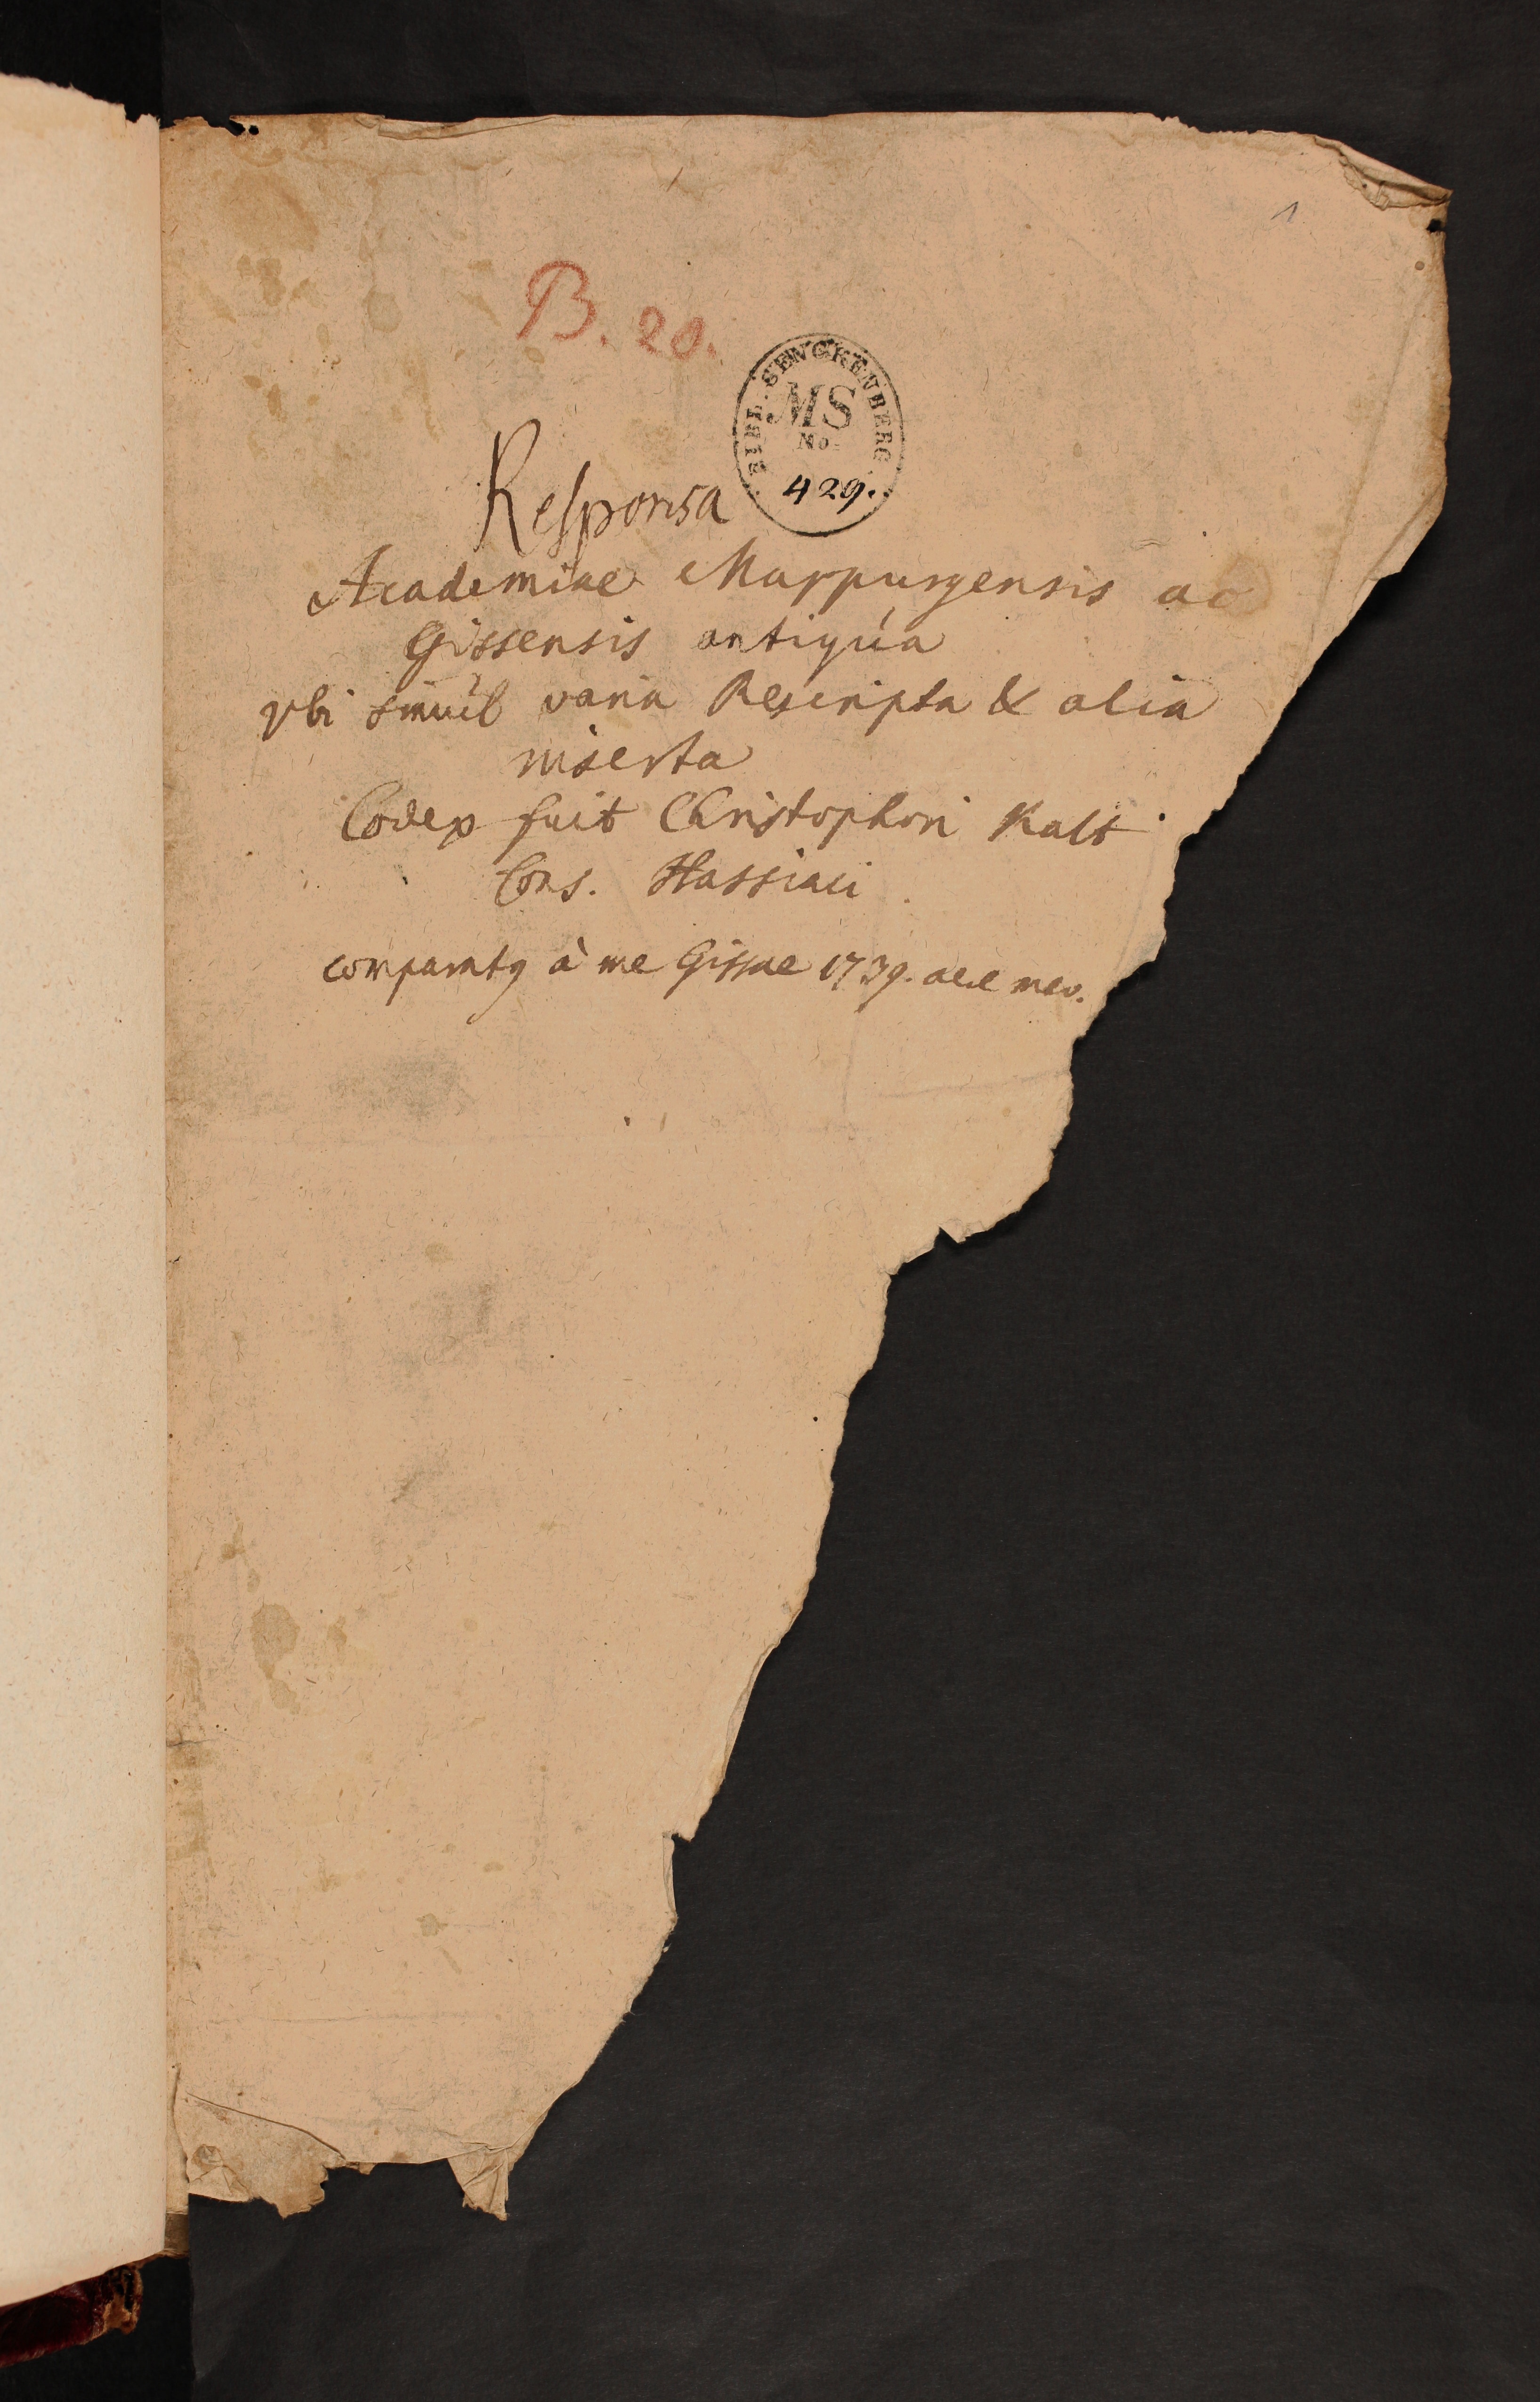 1
B. 20.
BIBL. SENCKENBERG.
MS
No.
429.
Responsa
Academiae Marpurgensis ac
Gissensis antiqua
vbi simul varia Rescripta & alia
inserta
Codex fuit Christophori Kalt
Cons. Hassiaci
comparatq à me Gissae 1739. aere meo.